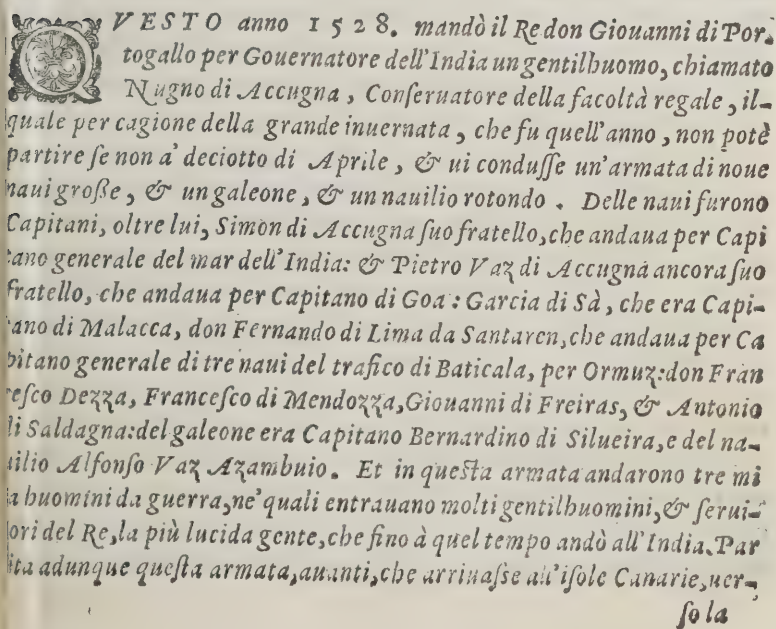 QVESTO anno 1528. mandò il Re don Giouanni di Por-
togallo per Gouernatore dell'India un gentilhuomo, chiamato
Nugno di Accugna, Conseruatore della facoltà regale, il-
quale per cagione della grande inuernata, che fu quell'anno, non potè
partire se non a' deciotto di Aprile, & ui condusse un'armata di noue
naui große, & un galeone, & un nauilio rotondo. Delle naui furono
Capitani, oltre lui, Simon di Accugna suo fratello, che andaua per Capi
tano generale del mar dell'India: & Pietro Vaz di Accugna ancora suo
fratello, che andaua per Capitano di Goa: Garcia di Sà, che era Capi-
tano di Malacca, don Fernando di Lima da Santaren, che andaua per Ca
pitano generale di tre naui del trafico di Baticala, per Ormuz: don Fran
cesco Dezza, Francesco di Mendozza, Giouanni di Freiras, & Antonio
di Saldagna: del galeone era Capitano Bernardino di Silueira, e del na-
uilio Alfonso Vaz Azambuio. Et in questa armata andarono tre mi
la huomini da guerra, ne' quali entrauano molti gentilhuomini, & serui-
tori del Re, la più lucida gente, che fino à quel tempo andò all'India. Par
tita adunque questa armata, auanti, che arriuasse all'isole Canarie, uer-
so la